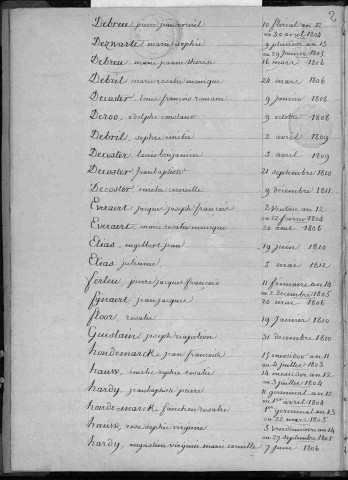 2
Debreu, pierre jean corneil 10 floréal an 12
ou 30 avril 1804
Dezwarte marie sophie 9 pluviose an 13
ou 29 Janvier 1805
Debreu, marie jeanne thérèse 16 mars 1806
Debril marie rosalie monique 24 mars 1806
Decoster, louis françois romain 9 janvier 1808
Deroo, adolphe constant 9 octobre 1808
Debril, sophie amelie 2 avril 1809
Decoster, louis benjamin 5 avril 1809
Decoster Jean baptiste 21 septembre 1810
Decoster amelie corneille 9 décembre 1811
Everaert jacques joseph françois 2 ventose an 12
ou 22 février 1804
Everaert, marie rosalie monique 22 aout 1806
Elias, engelbert jean 19 juin 1810
Elias julienne 5 mai 1812
ferlen, pierre jacques françois 11 frimaire an 14
ou 2 decembre 1805
fynaert jean jacques 20 mai 1806
floor, rosalie 19 Janvier 1810
Guislair joseph napoléon 31 décembre 1810
hondemarck jean francois 15 messidor an 11
ou 4 juillet 1803
hauw amelie sophie rosalie 14 messidor an 12
ou 3 juillet 1804
hardy jean baptiste pierre 11 germinal an 12
ou 1er avril 1804
honde-marck francheu rosalie 1er germinal an 13
ou 22 mars 1805
hauw, rose sophie virginie 5 vendemiaire an 14
ou 27 septembre 1805
hardy, augustine virginie marie corneille 7 juin 1806